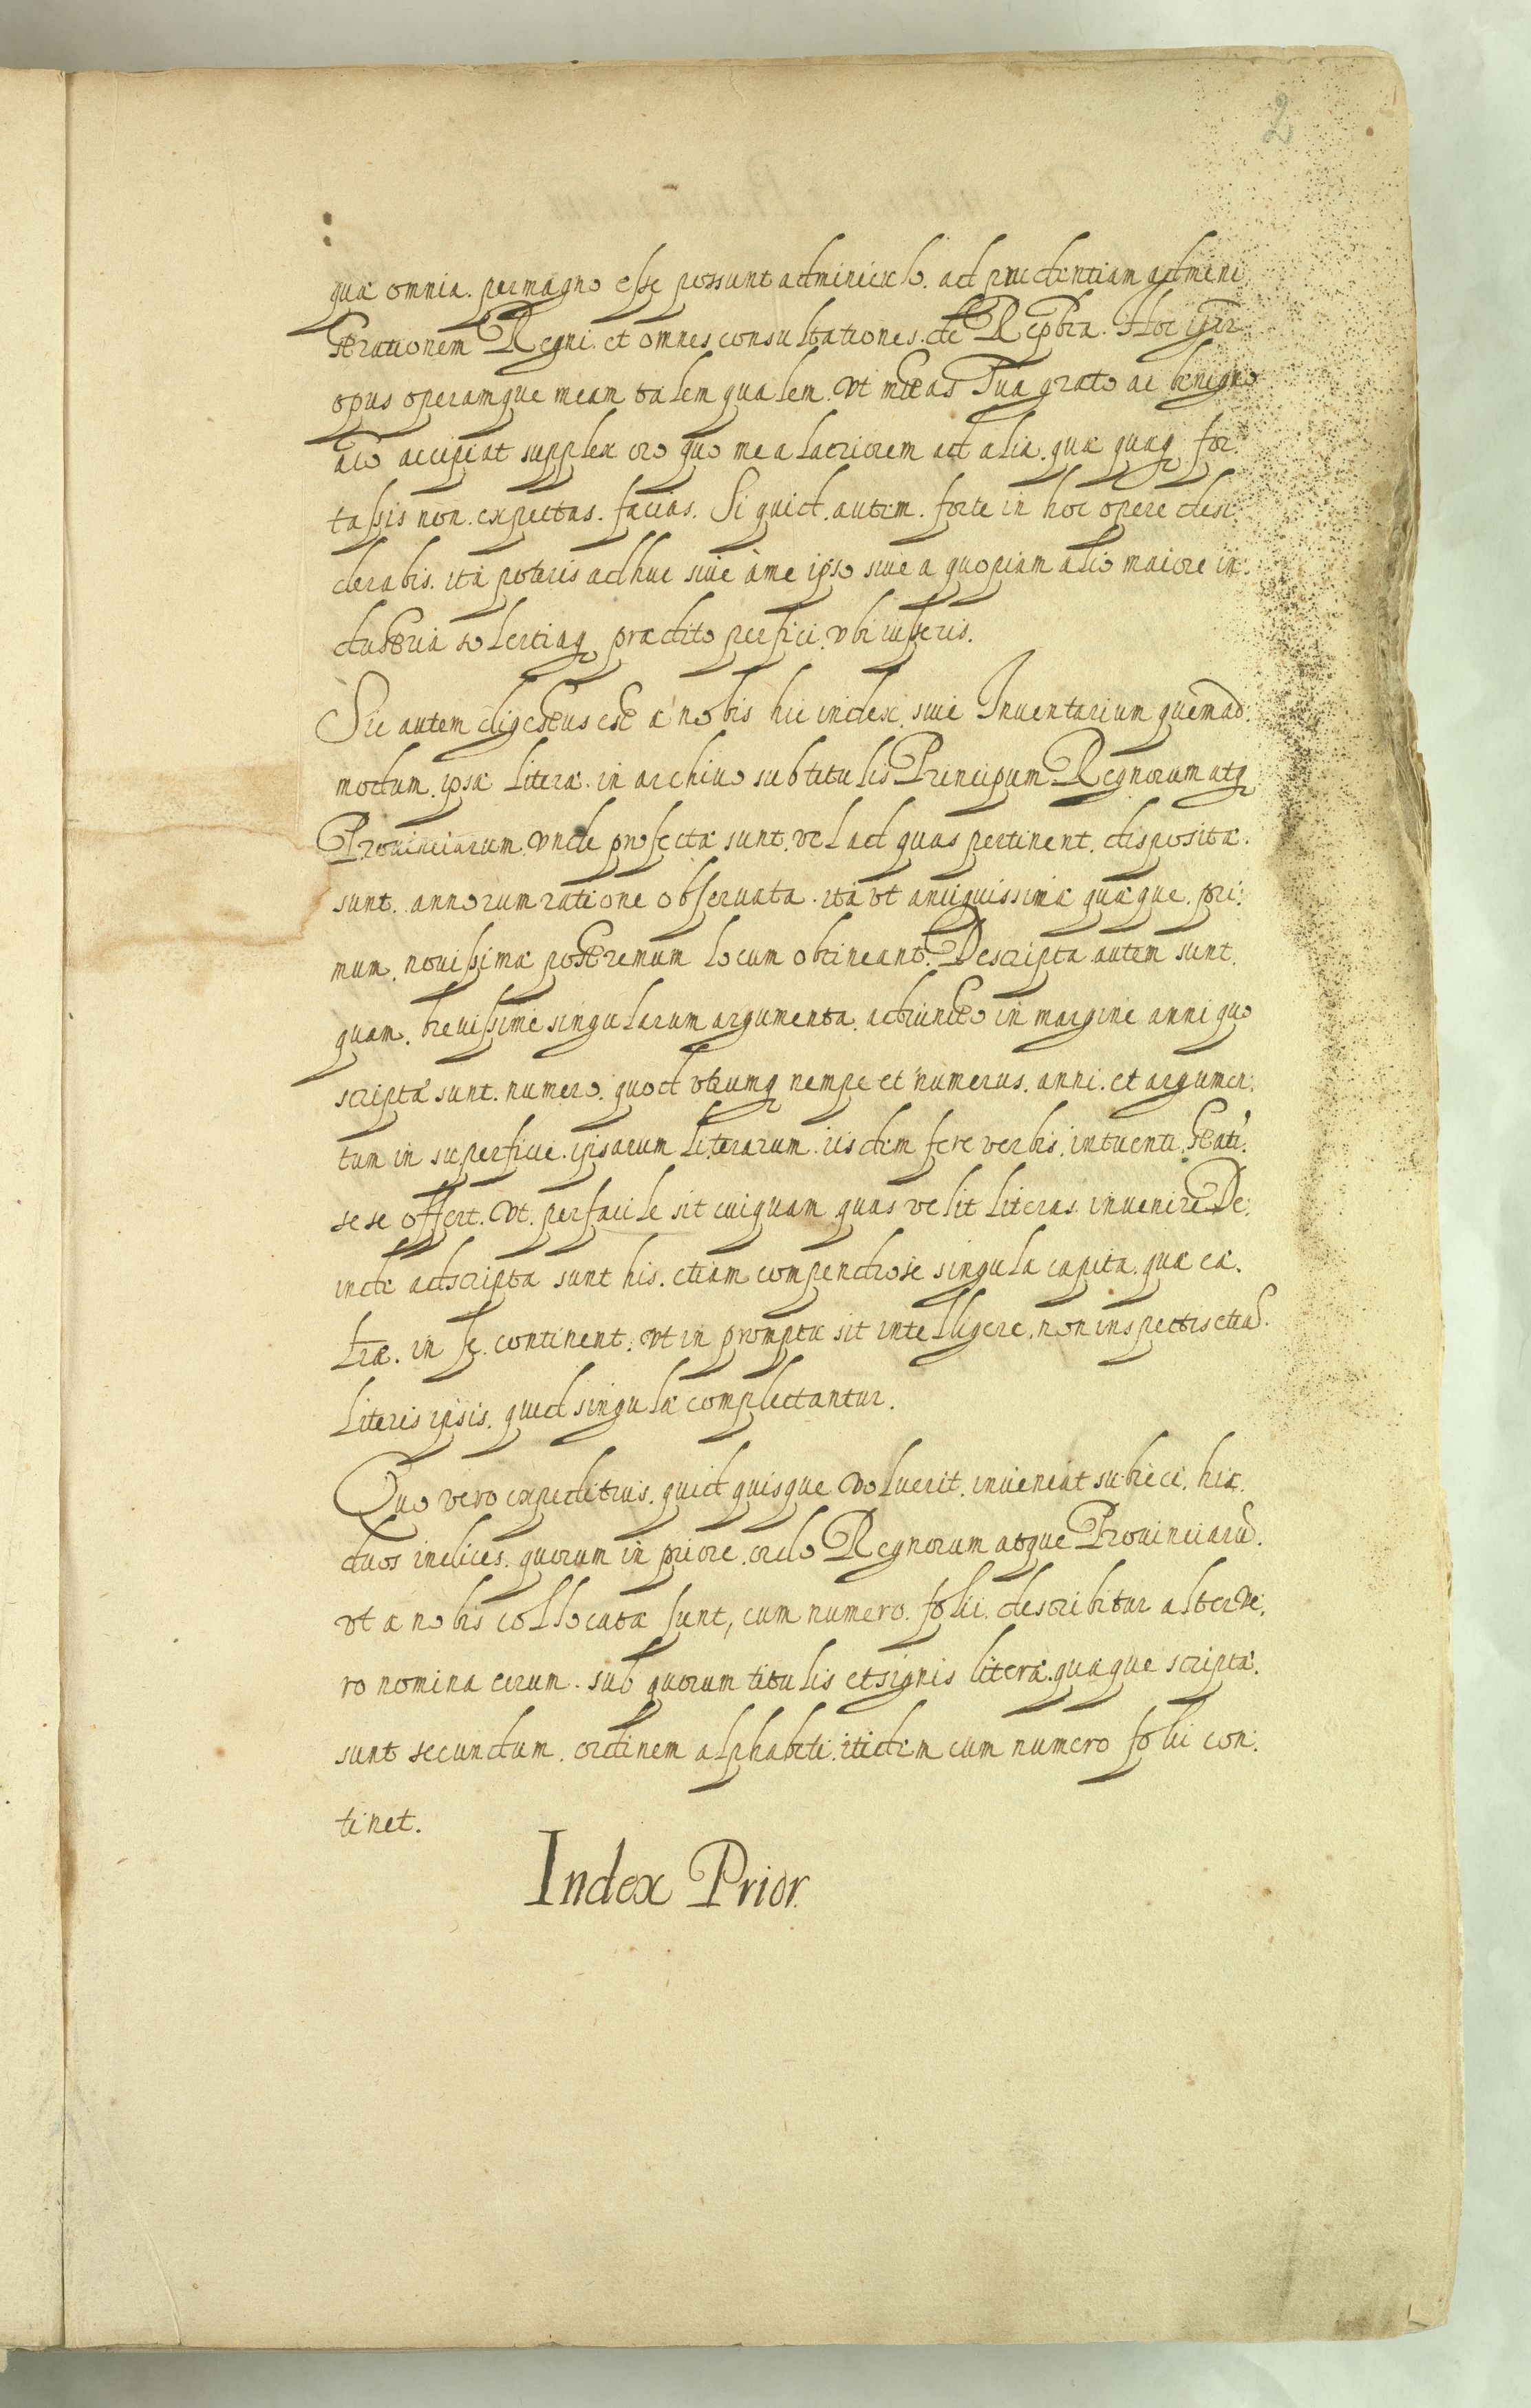 2
quæ omnia. permagno esse possunt adminiculo. ad prudentiam admini
strationem Regni. et omnes consultationes. de Repbca. Hoc igitr
opus operamque meam talem qualem. Vt mttas Tua grato ac benigno
aio accipiat supplex oro quo me alacriorem ad alia. quæ quaq for:
tassis non. expectas. facias. Si quid. autem. forte in hoc opere desi:
derabis. ita poteris adhuc siue àme ipso siue a quopiam alio maiore in:
dustria solertiaq prædito perfici. vbi iusseris.
Sic autem digestus est a nobis hic index. siue Inuentarium quemad:
modum. ipsæ literæ. in archiuo sub titulis Principum Regnorum atq
Prouinciarum. vnde profectæ sunt. vel ad quas pertinent. dispositæ.
sunt. annorum ratione obseruata. ita vt antiquissimæ quæque. pri:
mum. nouissimæ postremum locum obtineant. Descripta autem sunt.
quam. breuissime singularum argumenta. adiuncto in margine anni quo
scriptæ sunt. numero. quod vtrumq nempe et numerus. anni. et argumen:
tum in superficie. ipsarum literarum. iisdem fere verbis. intuenti. stati:
sese offert. Vt. perfacile sit cuiquam quas velit literas. inuenire De:
inde adscripta sunt his. etiam compendiose singula capita. quæ eæ.
lræ. in se. continent. Vt in promptu sit intelligere. non inspectis etia.
literis ipsis. quid singulæ complectantur.
Quo vero expeditius. quid quisque voluerit. inueniat subieci. hic.
duos indices. quorum in priore. ordo Regnorum atque Prouinciaru.
vt a nobis collocata sunt, cum numero. folii. describitur alter ve:
ro nomina eorum. sub quorum titulis et signis literæ. quæque scriptæ.
sunt secundum. ordinem alphabeti. itidem cum numero folii con:
tinet.
Index Prior.